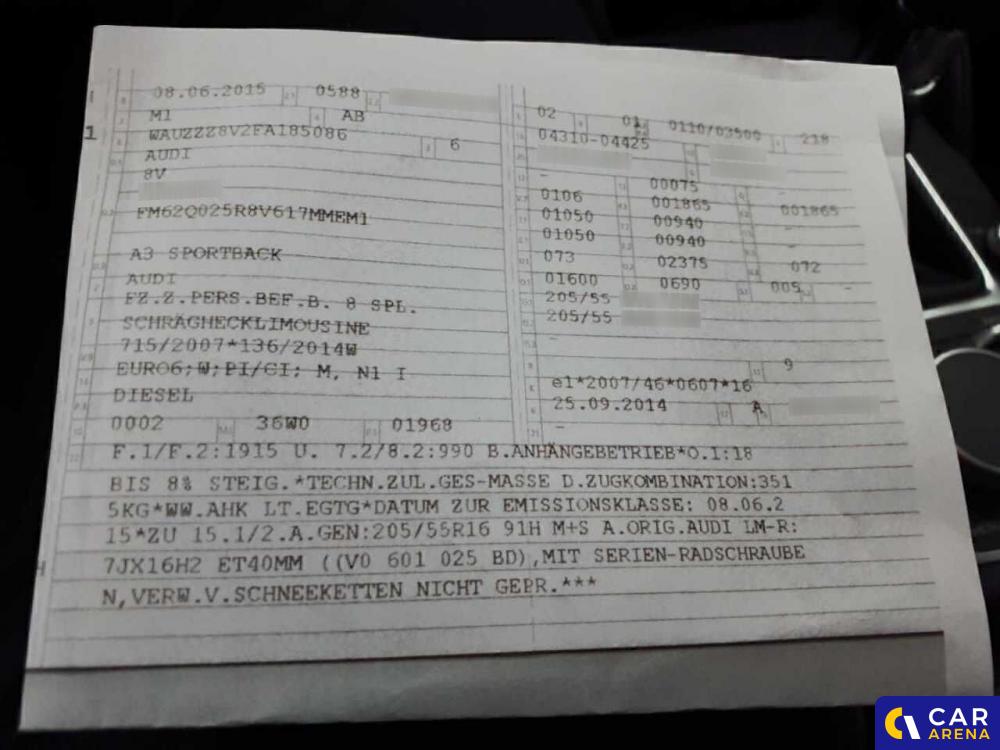 08.06.2015 0588
M1 AB
1
WAUZZZ8V2FA185086 6
AUDI
8V
FM62Q025R8V617MMEM1
A3 SPORTBACK
AUDI
FZ.Z.PERS.BEF.B. 8 SPL.
SCHRÄGHECKLIMOUSINE
715/2007*136/2014W
EURO6;W;PI/CI; M, N1 I
DIESEL
0002 36W0 01968
02 01 0110/03500 218
04310-04425
- 00075 -
0106 001865 001865
01050 00940 -
01050 00940 -
073 02375 072
01600 0690 005 -
205/55
205/55
-
9
e1*2007/46*0607*16
25.09.2014 A
-
F.1/F.2:1915 U. 7.2/8.2:990 B.ANHÄNGEBETRIEB*O.1:18
BIS 8% STEIG.*TECHN.ZUL.GES-MASSE D.ZUGKOMBINATION:351
5KG*WW.AHK LT.EGTG*DATUM ZUR EMISSIONSKLASSE: 08.06.2
15*ZU 15.1/2.A.GEN:205/55R16 91H M+S A.ORIG.AUDI LM-R:
7JX16H2 ET40MM ((V0 601 025 BD),MIT SERIEN-RADSCHRAUBE
N,VERW.V.SCHNEEKETTEN NICHT GEPR.***
CAR
ARENA